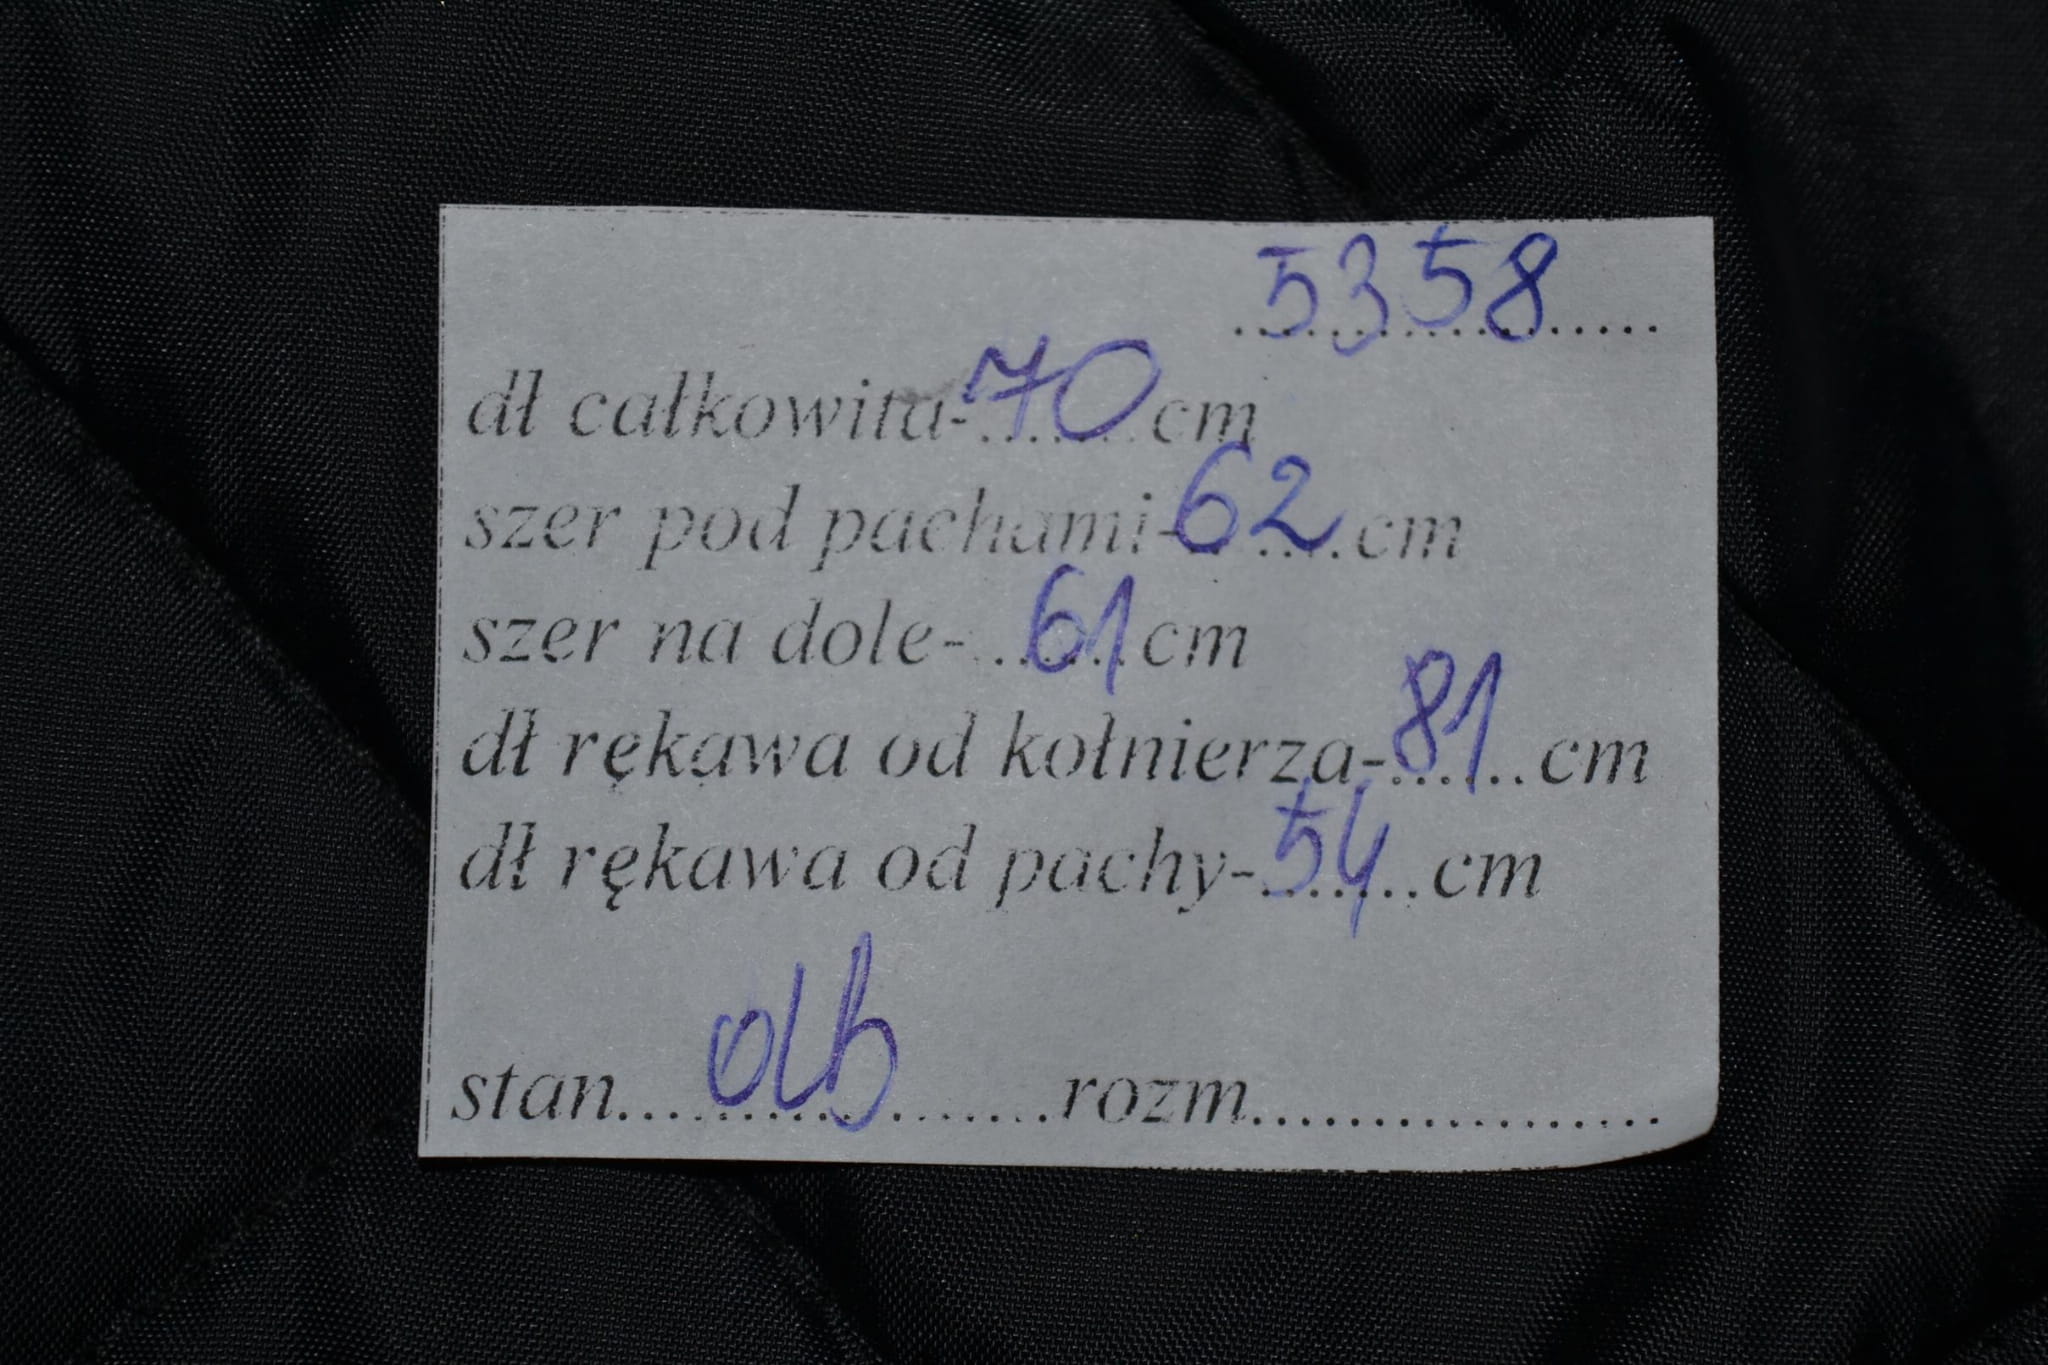 5358
dł całkowita-70 cm
szer pod pachami-62 cm
szer na dole-61 cm
dł rękawa od kołnierza-81 cm
dł rękawa od pachy-54 cm
stan..................rozm..................